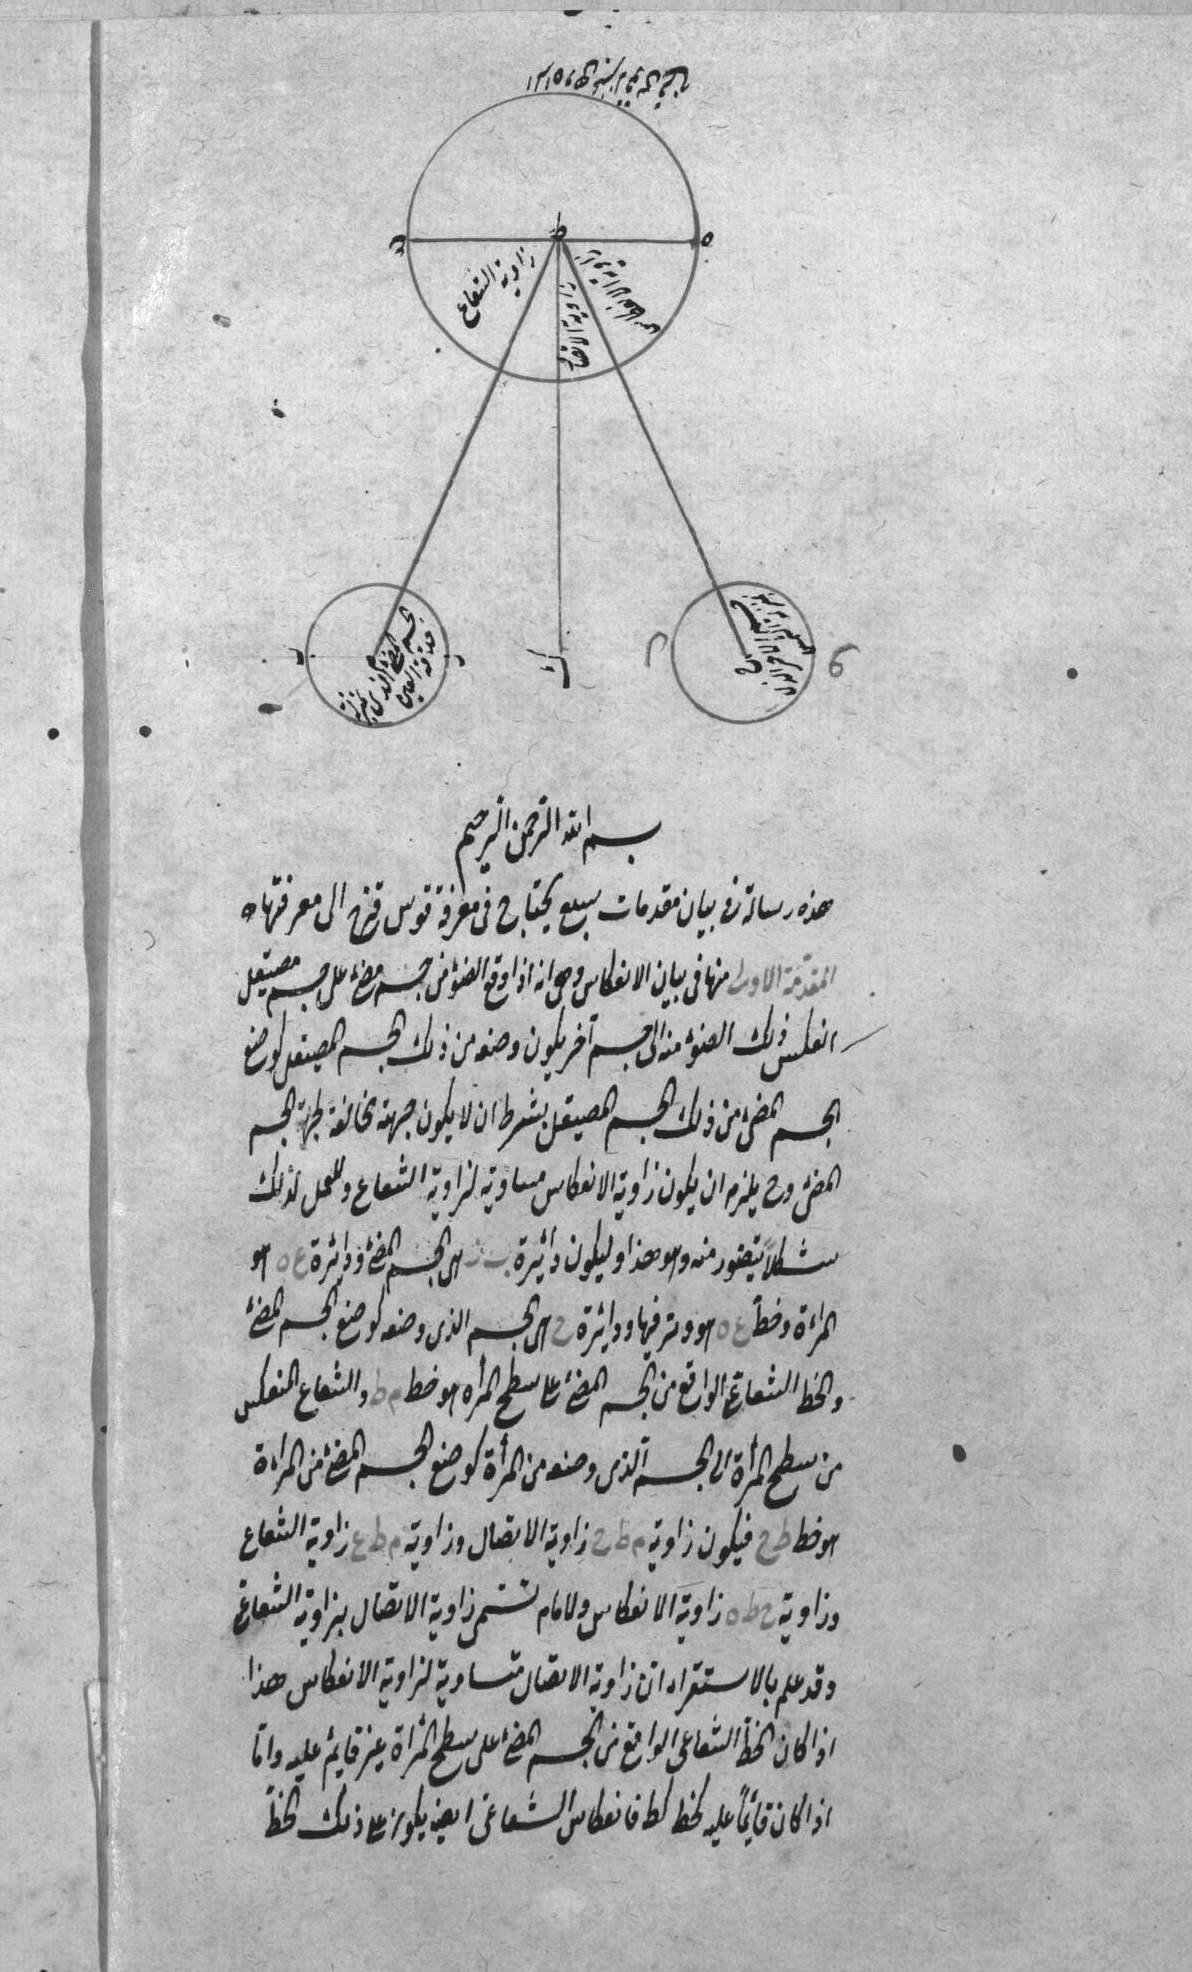 ع
ط
ه
زاوية الشعاع
ك
ح
بسم الله الرحمن الرحيم
هذه رسالة في بيان مقدمات سبع يحتاج في معرفة قوس قزح الى معرفتها
المقدمة الاولى منها في بيان الانعكاس وهي انه اذا وقع الضوء من جسم مضئ على جسم صيقل
انعكس ذلك الضوء منه الى جسم آخر يكون وضعه من ذلك الجسم الصيقل كوضع
الجسم المضئ من ذلك الجسم الصيقل بشرط ان لا يكون جهته مخالفة لجهة الجسم
المضئ وح يلزم ان يكون زاوية الانعكاس مساوية لزاوية الشعاع ولنمثل لذلك
شكلاً يتصور منه وهو هذا وليكون دائرة ب ز هى الجسم المضئ ودائرة ع ه هو
المراءة وخط ع ه هو وتر فيها ودائرة ح هى الجسم الذى وضعه كوضع الجسم المضئ
والخط الشعاعى الواقع من الجسم المضئ على سطح المرأه هو خط م ط والشعاع المنعكس
من سطح المرأة الى الجسم الذى وضعه من المرأة كوضع الجسم المضئ من المراءة
هو خط ط ح فيكون زاوية م ط ح زاوية الاتصال وزاوية م ط ع زاوية الشعاع
وزاوية ح ط ه زاوية الانعكاس والامام تسمى زاوية الاتصال بزاوية الشعاع
وقد علم بالاستقراء ان زاوية الاتصال متساوية لزاوية الانعكاس هذا
اذا كان الخط الشعاعى الواقع من الجسم المضئ على سطح المرأة غير قايم عليه واما
اذا كان قائماً عليه كخط كط فانعكاس الشعاعى ايضا يكون على ذلك الخط